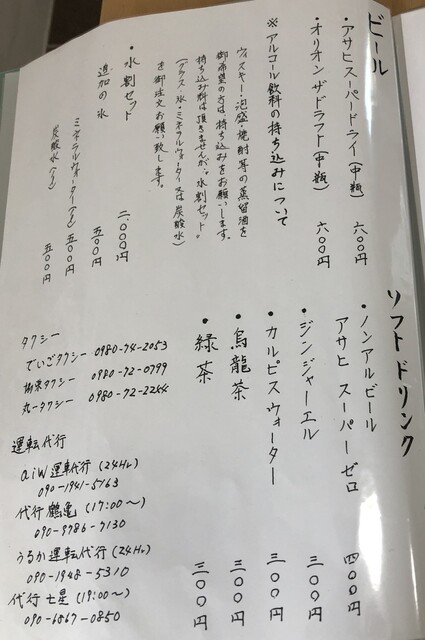 ビール
・アサヒスーパードライ(中瓶) 六〇〇円
・オリオンザドラフト(中瓶) 六〇〇円
※アルコール飲料の持ち込みについて
ウィスキー・泡盛・焼酎等の蒸留酒を
御希望の方は持ち込みをお願いします。
持ち込み料は頂きませんが、水割セット。
(グラス・氷・ミネラルウォーター又は炭酸水)
を御注文お願い致します。
・水割セット 二、〇〇〇円
追加の氷 五〇〇円
ミネラルウォーター 五〇〇円
炭酸水 五〇〇円
ソフトドリンク
・ノンアルビール
アサヒ スーパーゼロ 四〇〇円
・ジンジャーエル 三〇〇円
・カルピスウォーター 三〇〇円
・烏龍茶 三〇〇円
・緑茶 三〇〇円
タクシー
でいごタクシー 0980-74-2053
タクシー 0980-72-0799
丸一タクシー 0980-72-2244
運転代行
aiW運転代行(24Hr)
090-1941-5163
代行鶴亀(17:00〜)
090-9786-7130
うるか運転代行(24Hr)
090-1948-5310
代行七星(19:00〜)
090-6867-0850